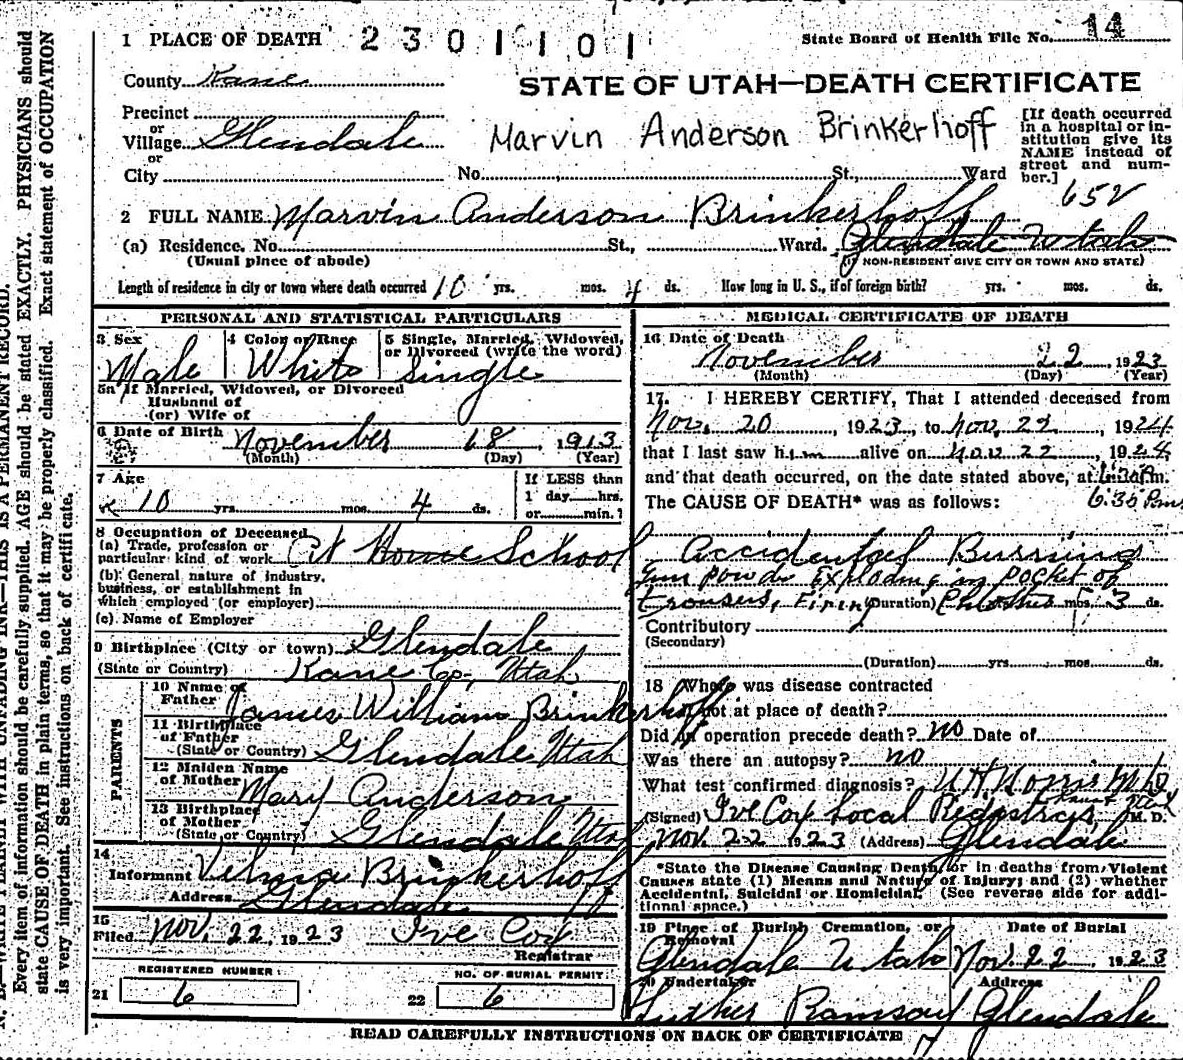 1 PLACE OF DEATH 2301101 State Board of Health File No. 14
County Kane
STATE OF UTAH—DEATH CERTIFICATE
Precinct
or
Village Glendale
or
City No. St., Ward
Marvin Anderson Brinkerhoff
[If death occurred
in a hospital or in-
stitution give its
NAME instead of
street and num-
ber.]
65V
2 FULL NAME Marvin Anderson Brinkerhoff
(a) Residence. No. St., Ward. Glendale Utah
(Usual place of abode) (If NON-RESIDENT GIVE CITY OR TOWN AND STATE)
Length of residence in city or town where death occurred 10 yrs. mos. 4 ds. How long in U. S., if of foreign birth? yrs. mos. ds.
PERSONAL AND STATISTICAL PARTICULARS
3 Sex 4 Color or Race 5 Single, Married, Widowed,
or Divorced (write the word)
Male White Single
5a If Married, Widowed, or Divorced
Husband of
(or) Wife of
6 Date of Birth November 18, 1913
(Month) (Day) (Year)
7 Age
10 yrs. mos. 4 ds.
If LESS than
1 day hrs.
or min.?
8 Occupation of Deceased
(a) Trade, profession or
particular kind of work At Home School
(b) General nature of industry,
business, or establishment in
which employed (or employer)
(c) Name of Employer
9 Birthplace (City or town) Glendale
(State or Country) Kane Co, Utah
PARENTS
10 Name of
Father James William Brinkerhoff
11 Birthplace
of Father
(State or Country) Glendale Utah
12 Maiden Name
of Mother Mary Anderson
13 Birthplace
of Mother
(State or Country) Glendale Utah
14
Informant Velma Brinkerhoff
Address Glendale
15
Filed Nov. 22, 1923 Ive Cox
Registrar
REGISTERED NUMBER
21 6
NO. OF BURIAL PERMIT
22 6
MEDICAL CERTIFICATE OF DEATH
16 Date of Death
November 22, 1923
(Month) (Day) (Year)
17. I HEREBY CERTIFY, That I attended deceased from
Nov. 20, 1923, to Nov. 22, 1924
that I last saw him alive on Nov 22, 1924,
and that death occurred, on the date stated above, at 6:30 P.m.
The CAUSE OF DEATH* was as follows: 6:35 Pm
Accidental Burning
Gun powder Exploding in pocket of
trousers, Firing (Duration) mos. 3 ds.
Contributory
(Secondary)
(Duration) yrs. mos. ds.
18 Where was disease contracted
if not at place of death?
Did an operation precede death? No Date of
Was there an autopsy? no
What test confirmed diagnosis? Norris M D
(Signed) Ive Cox Local Registrar, M. D.
Nov. 22 1923 (Address) Glendale
*State the Disease Causing Death, or in deaths from Violent
Causes state (1) Means and Nature of Injury; and (2) whether
Accidental, Suicidal or Homicidal. (See reverse side for addi-
tional space.)
19 Place of Burial Cremation, or
Removal
Date of Burial
Glendale Utah Nov. 22, 1923
20 Undertaker Address
Luther Ramsay Glendale
READ CAREFULLY INSTRUCTIONS ON BACK OF CERTIFICATE
7
N. B.—WRITE PLAINLY WITH UNFADING INK—THIS IS A PERMANENT RECORD.
Every item of information should be carefully supplied. AGE should be stated EXACTLY. PHYSICIANS should
state CAUSE OF DEATH in plain terms, so that it may be properly classified. Exact statement of OCCUPATION
is very important. See instructions on back of certificate.